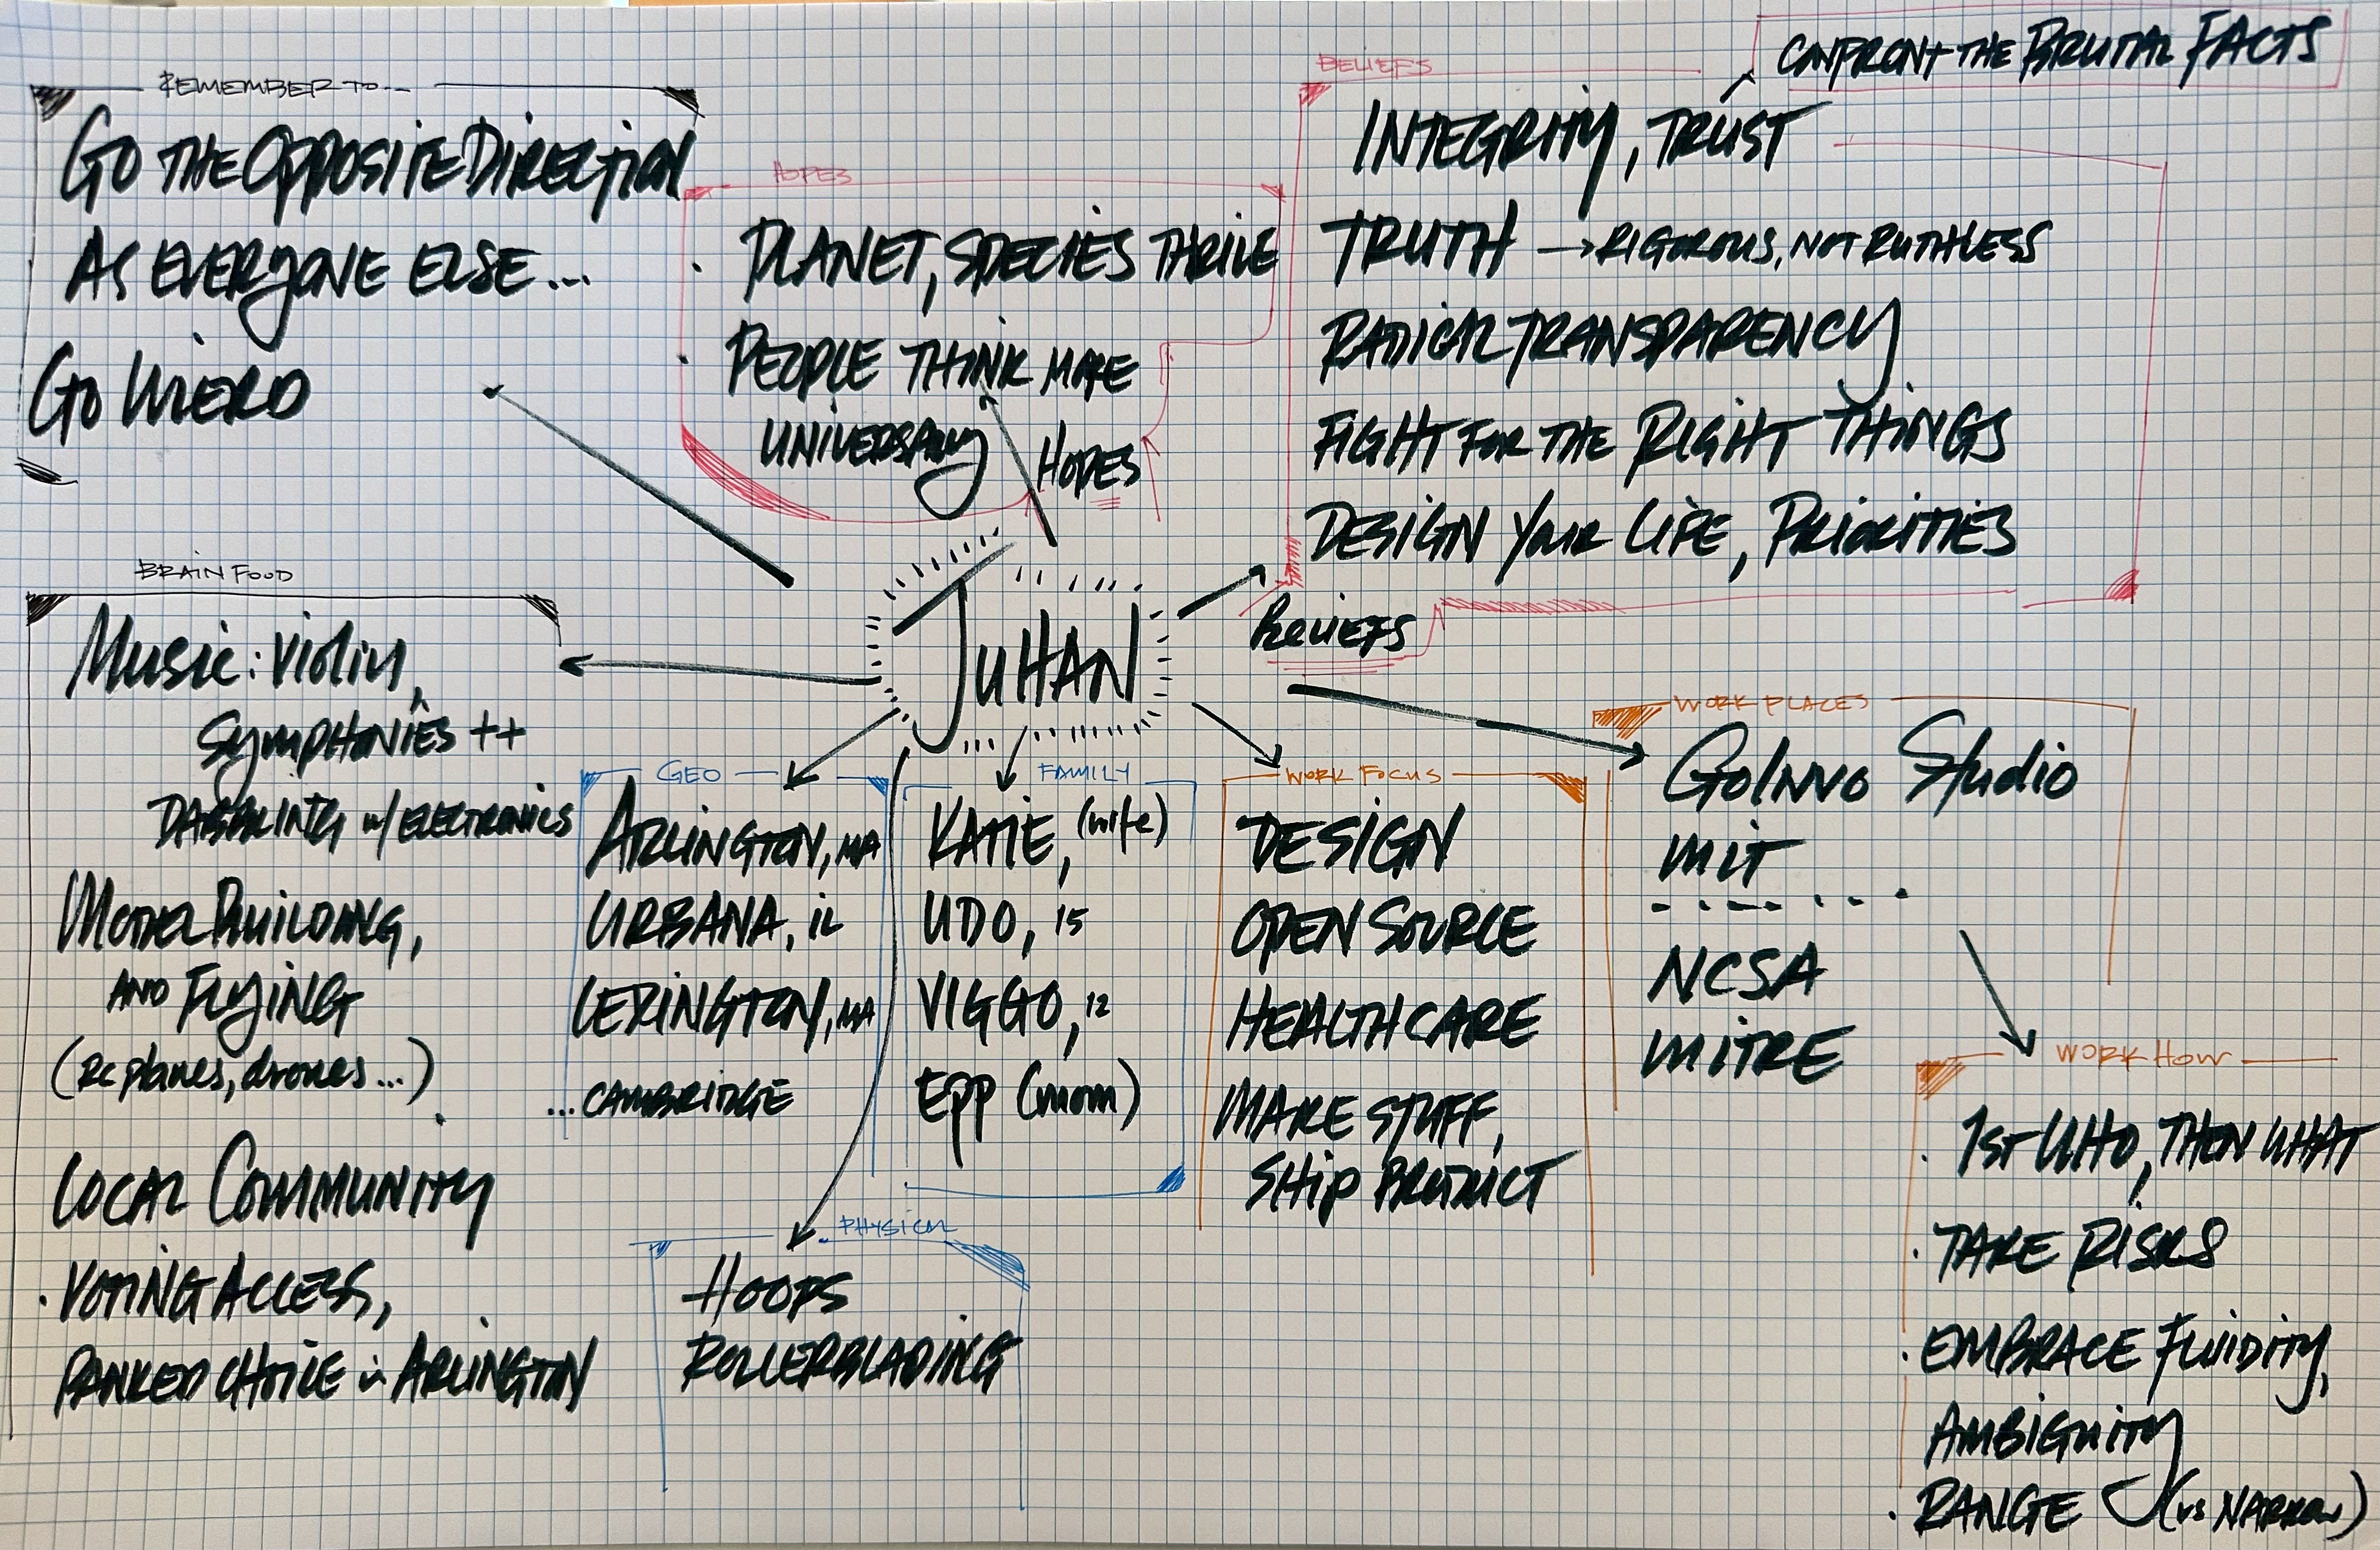 REMEMBER TO...
GO THE OPPOSITE DIRECTION
AS EVERYONE ELSE...
GO WIERD
HOPES
. PLANET, SPECIES THRIVE
. PEOPLE THINK MORE
UNIVERSALLY
HOPES
BELIEFS
CONFRONT THE BRUTAL FACTS
INTEGRITY, TRUST
TRUTH → RIGOROUS, NOT RUTHLESS
RADICAL TRANSPARENCY
FIGHT FOR THE RIGHT THINGS
DESIGN YOUR LIFE, PRIORITIES
BELIEFS
JUHAN
BRAIN FOOD
Music: Violin,
SYMPHONIES ++
DABBLING w/ ELECTRONICS
MODEL BUILDING,
AND FLYING
(RC planes, drones...)
LOCAL COMMUNITY
. VOTING ACCESS,
RANKED CHOICE in ARLINGTON
GEO
ARLINGTON, MA
URBANA, IL
LEXINGTON, MA
...CAMBRIDGE
FAMILY
KATIE, (wife)
UDO, 15
VIGGO, 12
EPP (mom)
PHYSICAL
HOOPS
ROLLERBLADING
WORK FOCUS
DESIGN
OPEN SOURCE
HEALTHCARE
MAKE STUFF,
SHIP PRODUCT
WORK PLACES
GoInvo Studio
MIT
NCSA
MITRE
WORK HOW
. 1ST WHO, THEN WHAT
. TAKE RISKS
. EMBRACE FLUIDITY,
AMBIGUITY
. RANGE (vs NARROW)